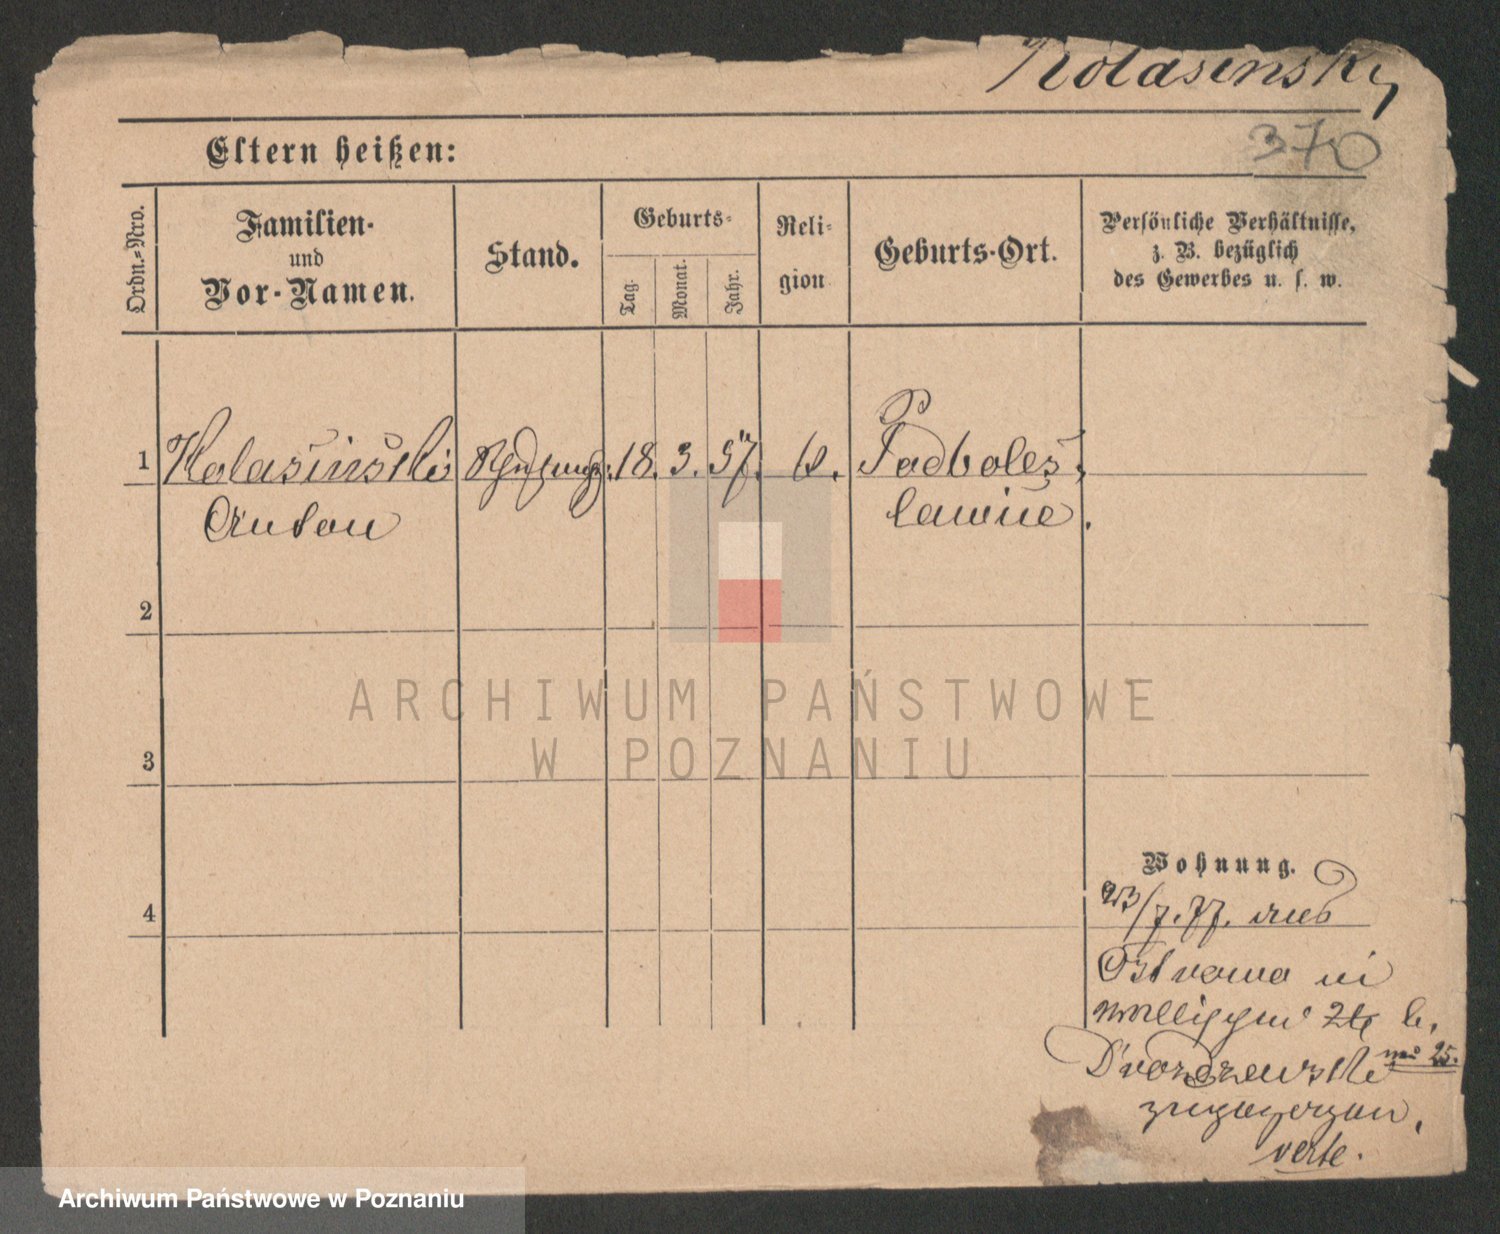 Kolasinsky
370
Eltern heißen:
Ordn.-Nro.
Familien-
und
Vor-Namen.
Stand.
Geburts-
Tag.
Monat.
Jahr.
Reli-
gion
Geburts-Ort.
Persönliche Verhältnisse,
z. B. bezüglich
des Gewerbes u. s. w.
1 Kolasiński 18. 3. 57. k. Podboles,
Anton lawice.
2
ARCHIWUM PAŃSTWOWE
W POZNANIU
3
Wohnung.
4
23/7. 77. aus
Ostrowo in
b.
no 25.
zugezogen,
verte.
Archiwum Państwowe w Poznaniu